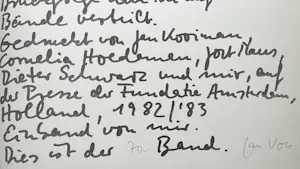 Bände verteilt.
Gedruckt von Jan Kooiman,
Cornelia Hoedeman, Jort Maas,
Dieter Schwarz und mir, auf
der Presse der Fundatie Amsterdam,
Holland, 1982/'83
Einband von mir.
Dies ist der Band. Jan Vos